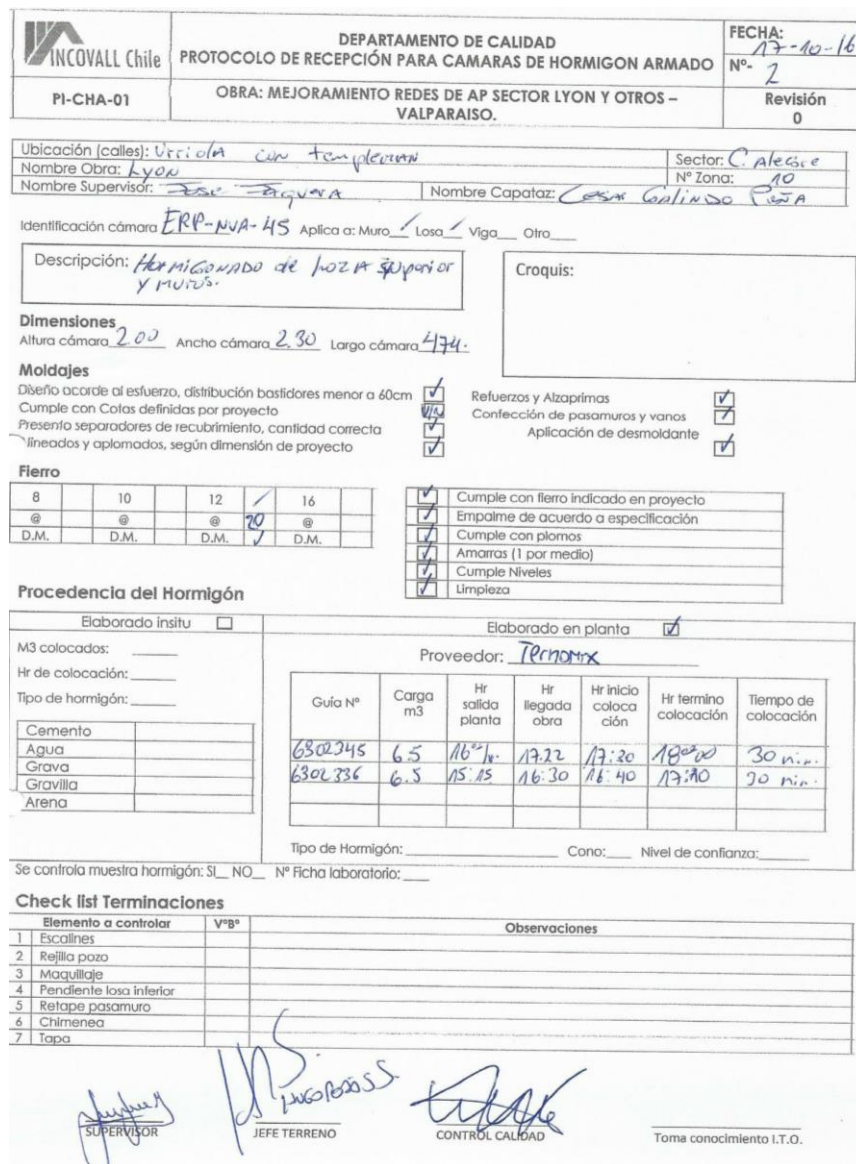 INCOVALL Chile
DEPARTAMENTO DE CALIDAD
PROTOCOLO DE RECEPCIÓN PARA CAMARAS DE HORMIGON ARMADO
FECHA: 17-10-16
Nº- 2
PI-CHA-01
OBRA: MEJORAMIENTO REDES DE AP SECTOR LYON Y OTROS –
VALPARAISO.
Revisión
0
Ubicación (calles): Urriola con templeman Sector: C. Alegre
Nombre Obra: Lyon Nº Zona: 10
Nombre Supervisor: Jose Nombre Capataz: Cesar Galindo Peña
Identificación cámara ERP-NVA-45 Aplica a: Muro / Losa / Viga___ Otro___
Descripción: Hormigonado de loza superior
y muros.
Croquis:
Dimensiones
Altura cámara 2.00 Ancho cámara 2.30 Largo cámara 474.
Moldajes
Diseño acorde al esfuerzo, distribución bastidores menor a 60cm ✓ Refuerzos y Alzaprimas ✓
Cumple con Cotas definidas por proyecto Confección de pasamuros y vanos ✓
Presento separadores de recubrimiento, cantidad correcta ✓ Aplicación de desmoldante ✓
lineados y aplomados, según dimensión de proyecto ✓
Fierro
8 10 12 / 16
@ @ @ 20 @
D.M. D.M. D.M. ✓ D.M.
✓ Cumple con fierro indicado en proyecto
✓ Empalme de acuerdo a especificación
✓ Cumple con plomos
✓ Amarras (1 por medio)
✓ Cumple Niveles
✓ Limpieza
Procedencia del Hormigón
Elaborado insitu
Elaborado en planta ✓
M3 colocados: ____
Hr de colocación: ____
Tipo de hormigón: ____
Cemento
Agua
Grava
Gravilla
Arena
Proveedor:
Guía Nº Carga m3 Hr salida planta Hr llegada obra Hr inicio coloca ción Hr termino colocación Tiempo de colocación
6302345 6.5 17.22 17:30 30 min.
6302336 6.5 15:15 16:30 16:40 17:10 30 min.
Tipo de Hormigón: ____ Cono:____ Nivel de confianza:____
Se controla muestra hormigón: SI__ NO__ Nº Ficha laboratorio: ____
Check list Terminaciones
Elemento a controlar VºBº Observaciones
1 Escalines
2 Rejilla pozo
3 Maquillaje
4 Pendiente losa inferior
5 Retape pasamuro
6 Chimenea
7 Tapa
SUPERVISOR
JEFE TERRENO
CONTROL CALIDAD
Toma conocimiento I.T.O.